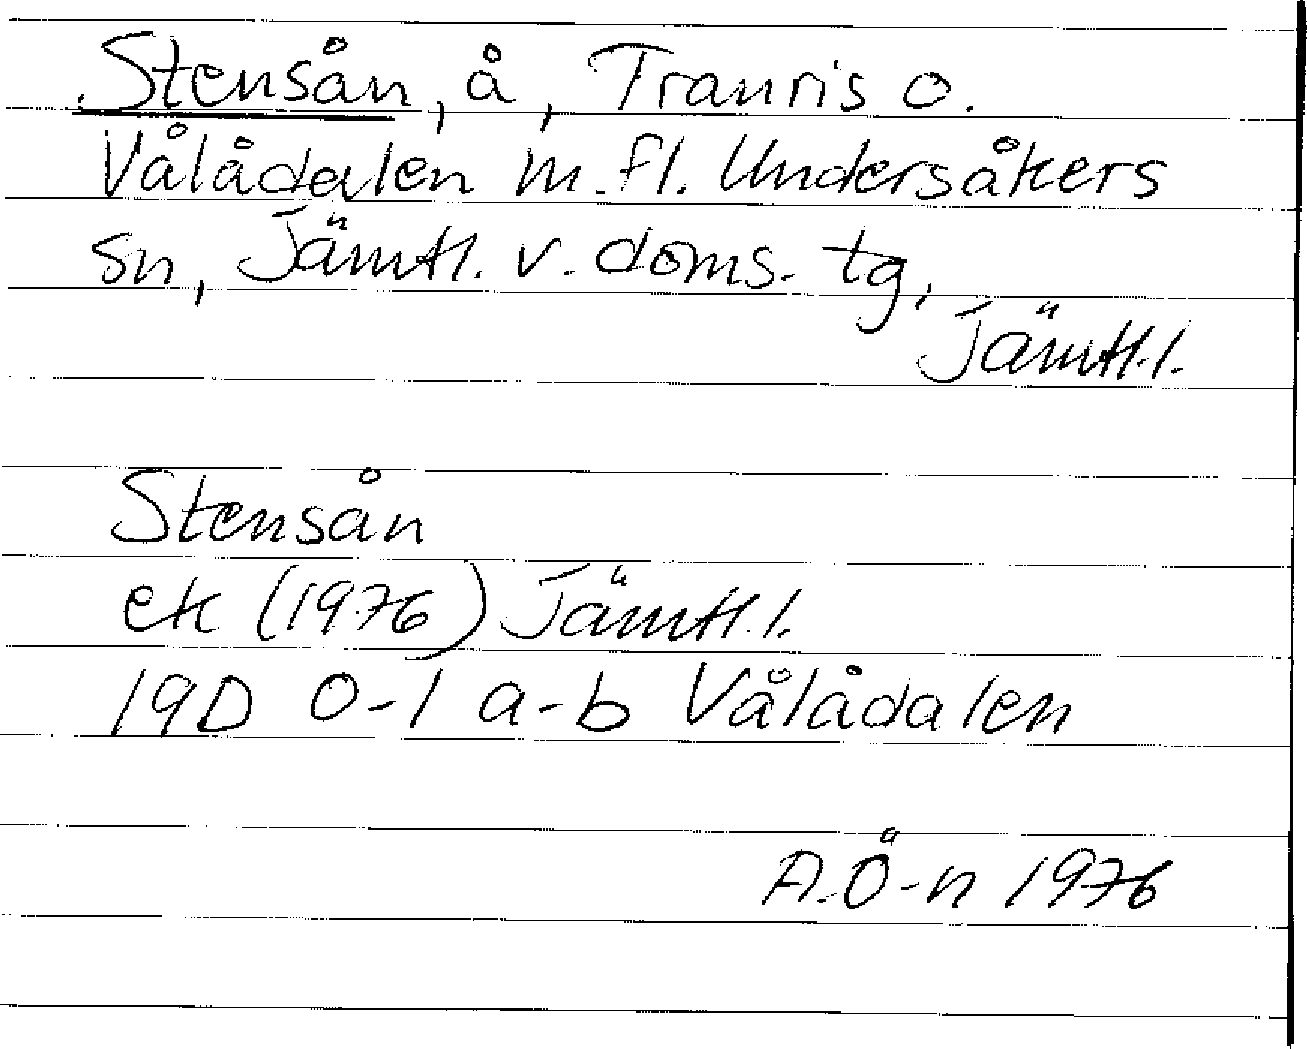 Stensån, å, Tranris o.
Vålådalen m.fl. Undersåkers
sn, Jämtl. v. doms. tg,
Jämtl.l.
Stensån
ek (1976) Jämtl.l.
19D 0-1 a-b Vålådalen
A.Ö-n 1976